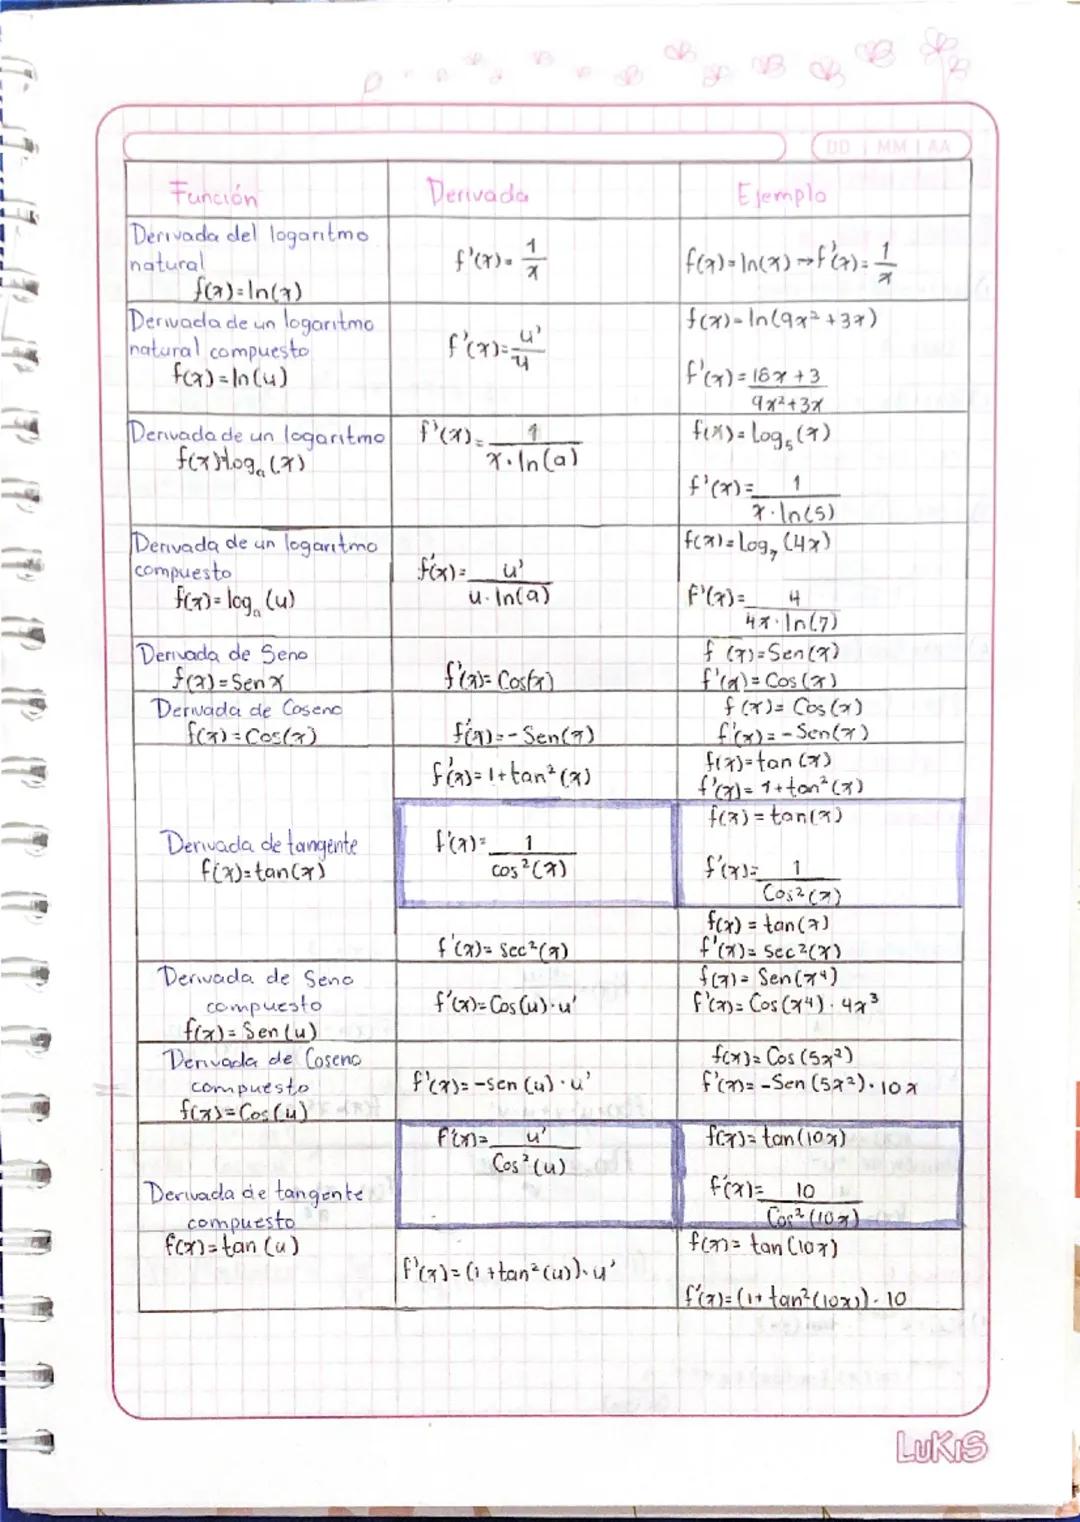 DD | MM | AA
Función Derivada Ejemplo
Derivada del logaritmo
natural
f(x)=ln(x)
f'(x)= 1/x
f(x)=ln(x)→f'(x)= 1/x
Derivada de un logaritmo
natural compuesto
f(x)=ln(u)
f'(x)= u'/u
f(x)=ln(9x²+3x)
f'(x)= 18x+3
9x²+3x
Derivada de un logaritmo
f(x)=logₐ(x)
f'(x)= 1
x·ln(a)
f(x)=Log₅(x)
f'(x)= 1
x·ln(5)
Derivada de un logaritmo
compuesto
f(x)=logₐ(u)
f'(x)= u'
u·ln(a)
f(x)=Log₇(4x)
f'(x)= 4
4x·ln(7)
Derivada de Seno
f(x)=Sen x
f'(x)=Cos(x)
f(x)=Sen(x)
f'(x)=Cos(x)
Derivada de Coseno
f(x)=Cos(x)
f'(x)=-Sen(x)
f(x)=Cos(x)
f'(x)=-Sen(x)
Derivada de tangente
f(x)=tan(x)
f'(x)=1+tan²(x)
f(x)=tan(x)
f'(x)=1+tan²(x)
f'(x)= 1
cos²(x)
f(x)=tan(x)
f'(x)= 1
Cos²(x)
f'(x)=sec²(x)
f(x)=tan(x)
f'(x)=sec²(x)
Derivada de Seno
compuesto
f(x)=Sen(u)
f'(x)=Cos(u)·u'
f(x)=Sen(x⁴)
f'(x)=Cos(x⁴)·4x³
Derivada de Coseno
compuesto
f(x)=Cos(u)
f'(x)=-sen(u)·u'
f(x)=Cos(5x²)
f'(x)=-Sen(5x²)·10x
Derivada de tangente
compuesto
f(x)=tan(u)
f'(x)= u'
Cos²(u)
f(x)=tan(10x)
f'(x)= 10
Cos²(10x)
f'(x)=(1+tan²(u))·u'
f(x)=tan(10x)
f'(x)=(1+tan²(10x))·10
LUKIS